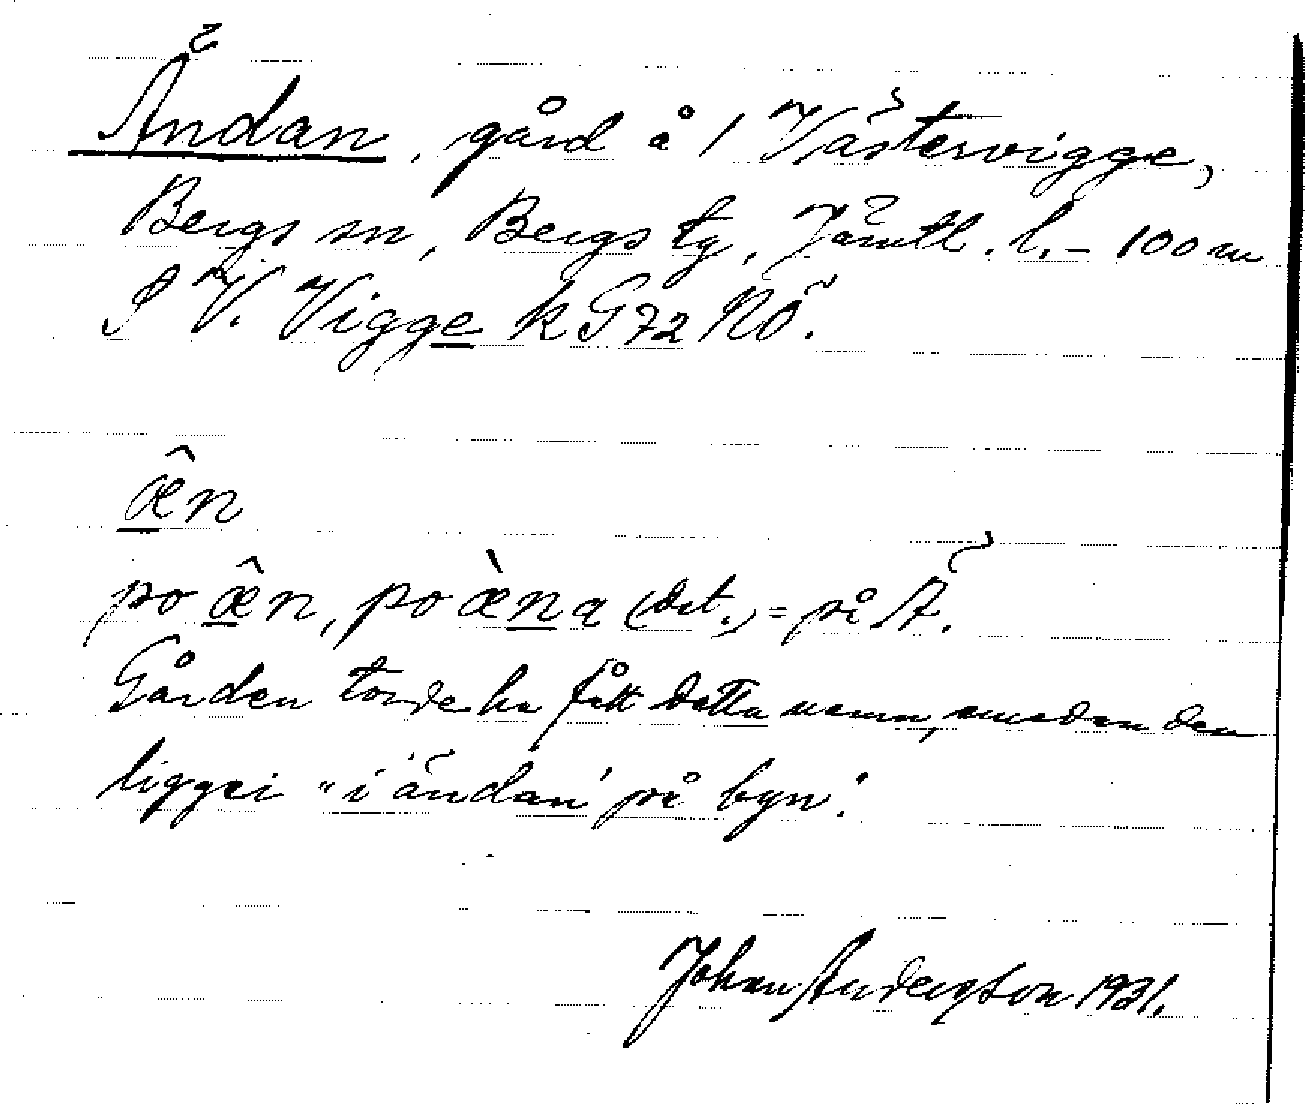 Ändan, gård å 1 Västervigge,
Bergs sn, Bergs tg, Jämtl. l. – 100 m
S V. Vigge k G 72 NÖ.
æ̂n
po æ̂n, po æ̀na (dat.) = på Ä.
Gården torde ha fått detta namn, emedan den
ligger "i ändan på byn".
Johan Anderson 1931.